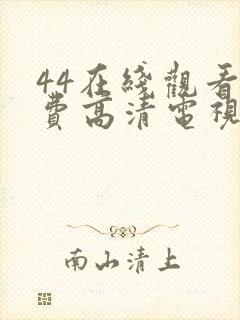 44在綫觀看
費高清電視
南山清上